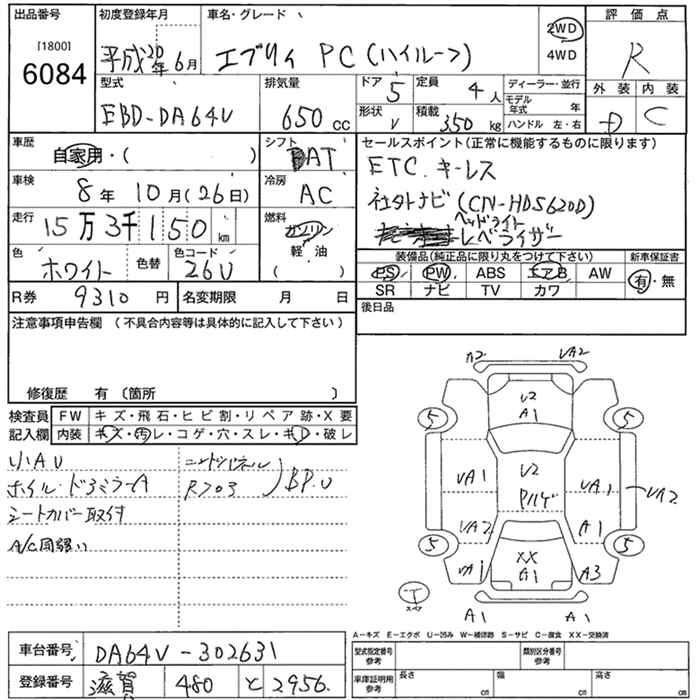 出品番号
[1800]
6084
初度登録年月
平成20年6月
車名・グレード
エブリイ PC (ハイルーフ)
2WD
4WD
評価点
R
外装 内装
D C
型式
EBD-DA64V
排気量
650 cc
ドア 5
定員 4人
形状 V
積載 350 kg
ディーラー・並行
モデル年式 年
ハンドル 左・右
車歴
自家用・( )
シフト
AT
車検
8年10月(26日)
冷房
AC
走行
15万3千150 km
燃料
ガソリン
軽油
( )
色
ホワイト
色替
色コード
26U
R券 9310円
名変期限 月 日
セールスポイント(正常に機能するものに限ります)
ETC. キーレス
社外ナビ (CN-HDS620D)
ヘッドライト
レベライザー
装備品(純正品に限り丸をつけて下さい)
新車保証書
PS PW ABS エアB AW
有・無
SR ナビ TV カワ
後日品
注意事項申告欄 (不具合内容等は具体的に記入して下さい)
修復歴 有 (箇所 )
検査員記入欄
FW キズ・飛石・ヒビ割・リペア跡・X要
内装 キズ・汚レ・コゲ・穴・スレ・キレ・破レ
小AU
ホイル・ドアミラーA
シートカバー取付
A/C
BP.U
A2 UA2
U2
A1
5 5
UA1 U2 UA1 UA2
UA2 A1
5 5
UA1 XX A3
A1
T
スペア
A1 A1
A-キズ E-エクボ U-凹み W-補修跡 S-サビ C-腐食 XX-交換済
車台番号 DA64V-302631
登録番号 滋賀 480 と 2956
型式指定番号 参考
類別区分番号 参考
車庫証明用 参考
長さ cm
幅 cm
高さ cm